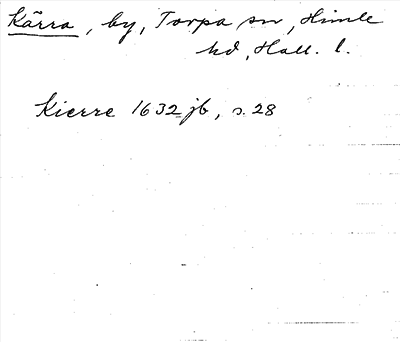 Kärra, by, Torpa sn, Himle
hd, Hall. l.
Kierre 1632 jb, s. 28